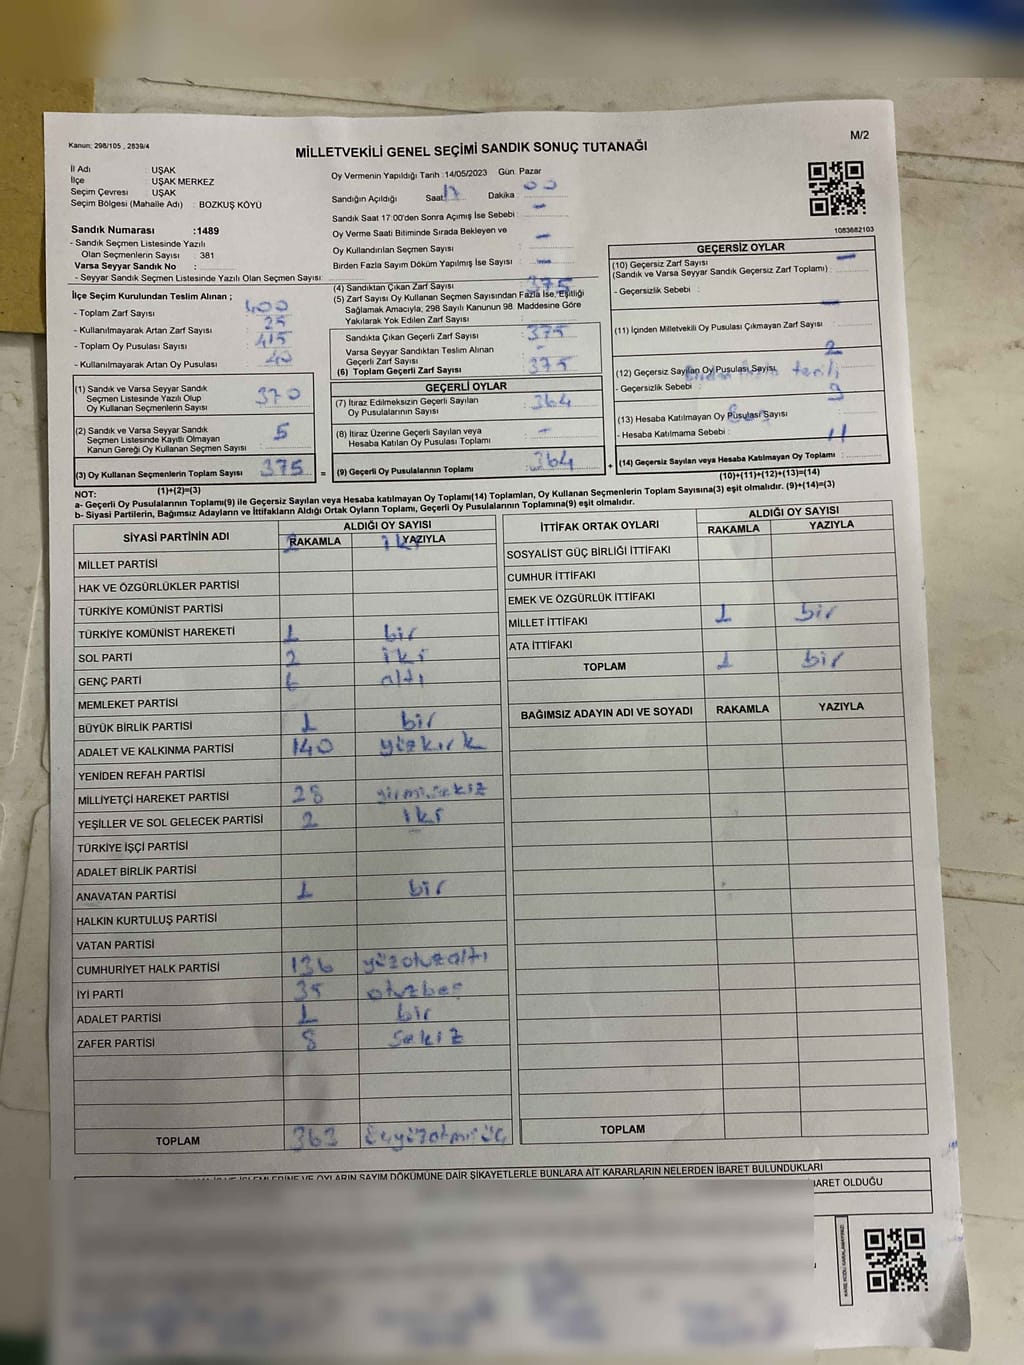 Kanun: 298/105 , 2839/4
M/2
MİLLETVEKİLİ GENEL SEÇİMİ SANDIK SONUÇ TUTANAĞI
İl Adı : UŞAK
İlçe : UŞAK MERKEZ
Seçim Çevresi : UŞAK
Seçim Bölgesi (Mahalle Adı) : BOZKUŞ KÖYÜ
Sandık Numarası :1489
- Sandık Seçmen Listesinde Yazılı
Olan Seçmenlerin Sayısı : 381
Varsa Seyyar Sandık No :
- Seyyar Sandık Seçmen Listesinde Yazılı Olan Seçmen Sayısı:
İlçe Seçim Kurulundan Teslim Alınan ;
- Toplam Zarf Sayısı : 400
- Kullanılmayarak Artan Zarf Sayısı : 25
- Toplam Oy Pusulası Sayısı : 415
- Kullanılmayarak Artan Oy Pusulası : 40
(1) Sandık ve Varsa Seyyar Sandık
Seçmen Listesinde Yazılı Olup
Oy Kullanan Seçmenlerin Sayısı 370
(2) Sandık ve Varsa Seyyar Sandık
Seçmen Listesinde Kayıtlı Olmayan
Kanun Gereği Oy Kullanan Seçmen Sayısı 5
(3) Oy Kullanan Seçmenlerin Toplam Sayısı 375 =
(1)+(2)=(3)
Oy Vermenin Yapıldığı Tarih :14/05/2023 Gün: Pazar
Sandığın Açıldığı Saat: 17 Dakika : 00
Sandık Saat 17:00'den Sonra Açımış İse Sebebi : -
Oy Verme Saati Bitiminde Sırada Bekleyen ve
Oy Kullandırılan Seçmen Sayısı : -
Birden Fazla Sayım Döküm Yapılmış İse Sayısı : -
(4) Sandıktan Çıkan Zarf Sayısı 375
(5) Zarf Sayısı Oy Kullanan Seçmen Sayısından Fazla İse, Eşitliği
Sağlamak Amacıyla, 298 Sayılı Kanunun 98. Maddesine Göre
Yakılarak Yok Edilen Zarf Sayısı :
Sandıkta Çıkan Geçerli Zarf Sayısı : 375
Varsa Seyyar Sandıktan Teslim Alınan
Geçerli Zarf Sayısı : -
(6) Toplam Geçerli Zarf Sayısı : 375
GEÇERLİ OYLAR
(7) İtiraz Edilmeksizin Geçerli Sayılan
Oy Pusulalarının Sayısı : 364
(8) İtiraz Üzerine Geçerli Sayılan veya
Hesaba Katılan Oy Pusulası Toplamı : -
(9) Geçerli Oy Pusulalarının Toplamı : 364 +
1083682103
GEÇERSİZ OYLAR
(10) Geçersiz Zarf Sayısı
(Sandık ve Varsa Seyyar Sandık Geçersiz Zarf Toplamı) : -
- Geçersizlik Sebebi :
(11) İçinden Milletvekili Oy Pusulası Çıkmayan Zarf Sayısı : -
(12) Geçersiz Sayılan Oy Pusulası Sayısı 2
- Geçersizlik Sebebi :
(13) Hesaba Katılmayan Oy Pusulası Sayısı 9
- Hesaba Katılmama Sebebi :
(14) Geçersiz Sayılan veya Hesaba Katılmayan Oy Toplamı : 11
(10)+(11)+(12)+(13)=(14)
NOT:
a- Geçerli Oy Pusulalarının Toplamı(9) ile Geçersiz Sayılan veya Hesaba katılmayan Oy Toplamı(14) Toplamları, Oy Kullanan Seçmenlerin Toplam Sayısına(3) eşit olmalıdır. (9)+(14)=(3)
b- Siyasi Partilerin, Bağımsız Adayların ve İttifakların Aldığı Ortak Oyların Toplamı, Geçerli Oy Pusulalarının Toplamına(9) eşit olmalıdır.
SİYASİ PARTİNİN ADI ALDIĞI OY SAYISI
RAKAMLA YAZIYLA
2 iki
MİLLET PARTİSİ
HAK VE ÖZGÜRLÜKLER PARTİSİ
TÜRKİYE KOMÜNİST PARTİSİ
TÜRKİYE KOMÜNİST HAREKETİ 1 bir
SOL PARTİ 2 iki
GENÇ PARTİ 6 altı
MEMLEKET PARTİSİ
BÜYÜK BİRLİK PARTİSİ 1 bir
ADALET VE KALKINMA PARTİSİ 140 yüzkırk
YENİDEN REFAH PARTİSİ
MİLLİYETÇİ HAREKET PARTİSİ 28 yirmisekiz
YEŞİLLER VE SOL GELECEK PARTİSİ 2 iki
TÜRKİYE İŞÇİ PARTİSİ
ADALET BİRLİK PARTİSİ
ANAVATAN PARTİSİ 1 bir
HALKIN KURTULUŞ PARTİSİ
VATAN PARTİSİ
CUMHURİYET HALK PARTİSİ 136 yüzotuzaltı
İYİ PARTİ 35 otuzbeş
ADALET PARTİSİ 1 bir
ZAFER PARTİSİ 8 sekiz
TOPLAM 363 üçyüzatmışüç
İTTİFAK ORTAK OYLARI ALDIĞI OY SAYISI
RAKAMLA YAZIYLA
SOSYALİST GÜÇ BİRLİĞİ İTTİFAKI
CUMHUR İTTİFAKI
EMEK VE ÖZGÜRLÜK İTTİFAKI
MİLLET İTTİFAKI 1 bir
ATA İTTİFAKI
TOPLAM 1 bir
BAĞIMSIZ ADAYIN ADI VE SOYADI RAKAMLA YAZIYLA
TOPLAM
OYLARIN SAYIM DÖKÜMÜNE DAİR ŞİKAYETLERLE BUNLARA AİT KARARLARIN NELERDEN İBARET BULUNDUKLARI
OLDUĞU